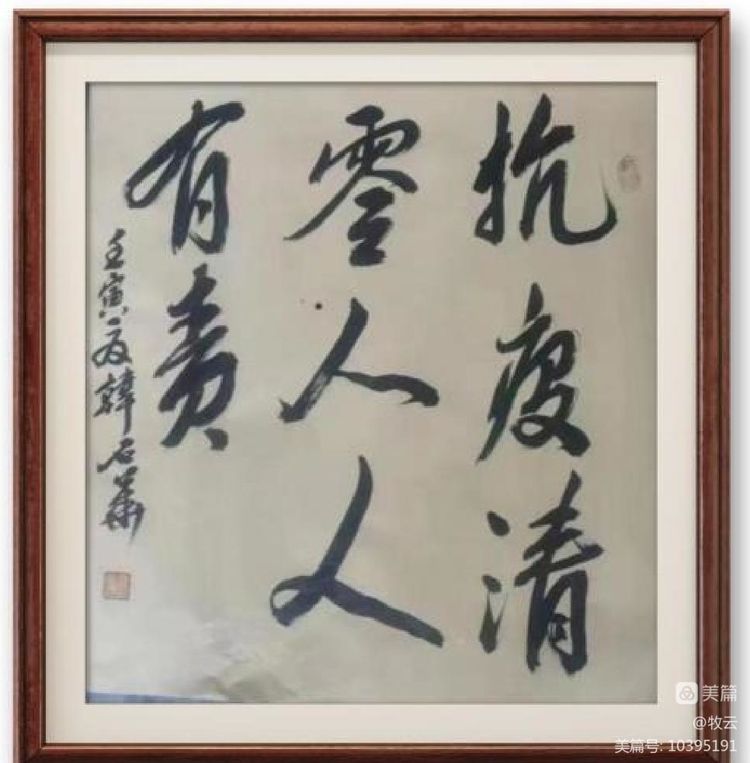 抗疫清
零人人
有责
壬寅 韓石
美篇
@牧云
美篇号: 10395191